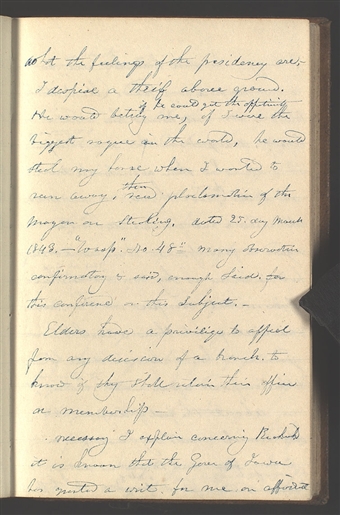 what the feelings of the presidency are,
I despise a theif above ground.
if he could get the opportunity
He would betray me, if I were the
biggest rogue in the world, he would
steal my horse when I wanted to
run away, then read proclamation of the
Mayor on Stealing, dated 25. day March
1843. —"Wasp". No. 48" many observations
confirmatory & said, enough said. for
this conference on this subject.—
Elders have a privilege to appeal
from any decission of a branch. to
know if they shall retain their office
or membership—
necessary I explain concerning
it is known that the Gover of
has granted a writ for me on affidavit